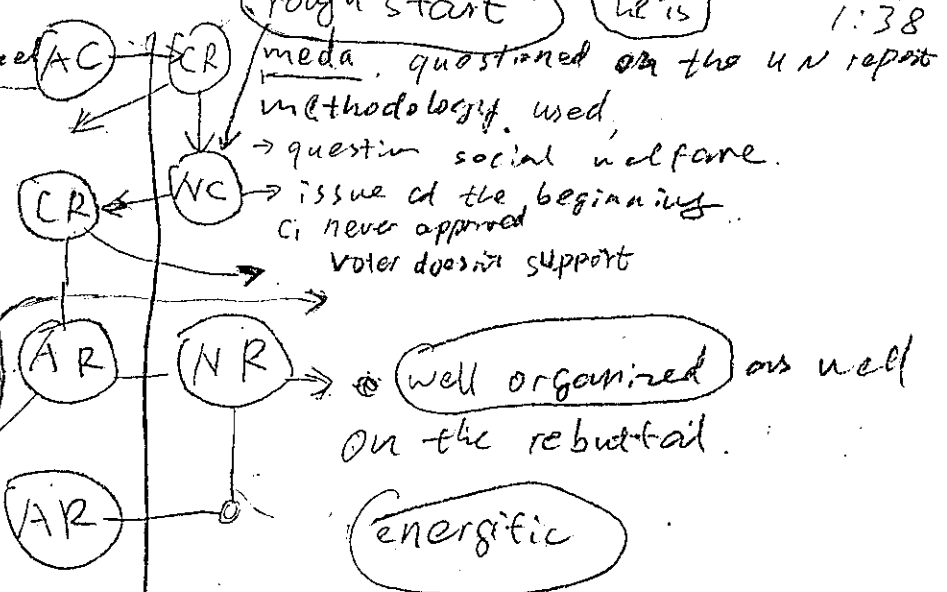 rough start he is 1:38
AC CR meda. questioned on the UN report
methodology used,
→ question social welfare.
CR NC → issue at the beginning
C1 never approved
voter doesn't support
AR NR → well organized as well
on the rebuttal.
AR energific